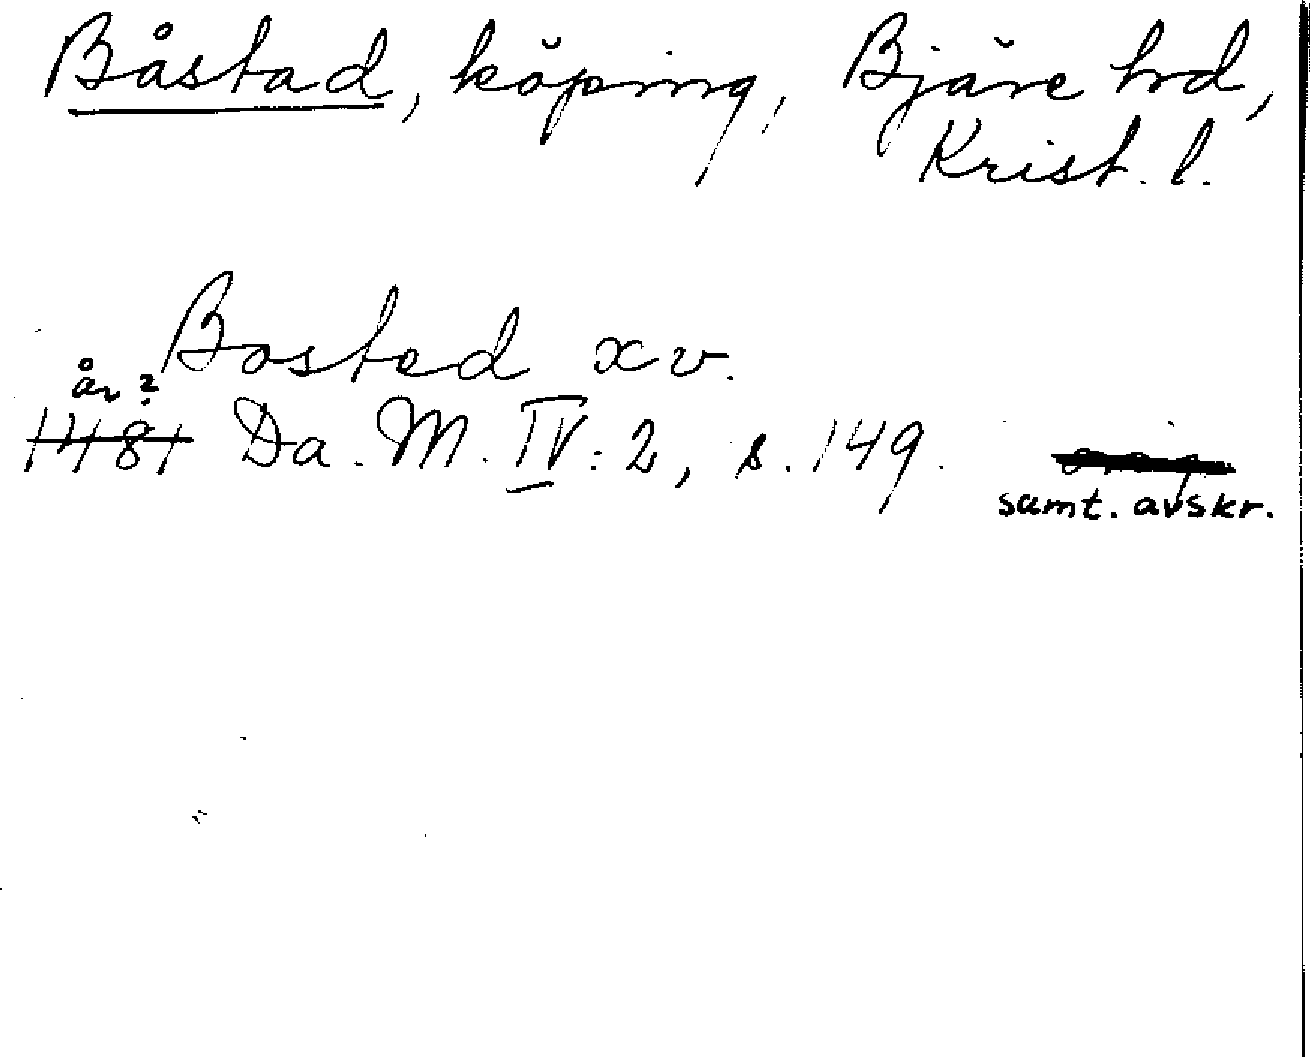 Båstad, köping, Bjäre hd,
Krist. l.
Bosted xv.
år?
1481 Da. M. IV: 2, s. 149.
samt. avskr.